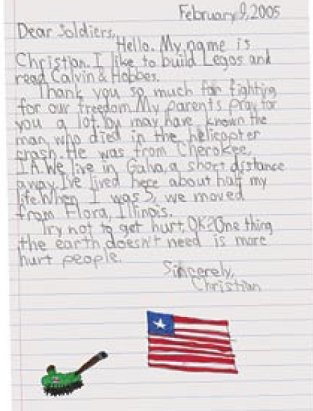 February 9, 2005
Dear Soldiers,
Hello. My name is
Christian. I like to build Legos and
read Calvin & Hobbes.
Thank you so much for fighting
for our freedom. My parents pray for
you a lot. You may have known the
man who died in the helicopter
crash. He was from Cherokee,
IA. We live in Galva, a short distance
away. I've lived here about half my
life. When I was 5, we moved
from Flora, Illinois.
Try not to get hurt, OK? One thing
the earth doesn't need is more
hurt people.
Sincerely,
Christian